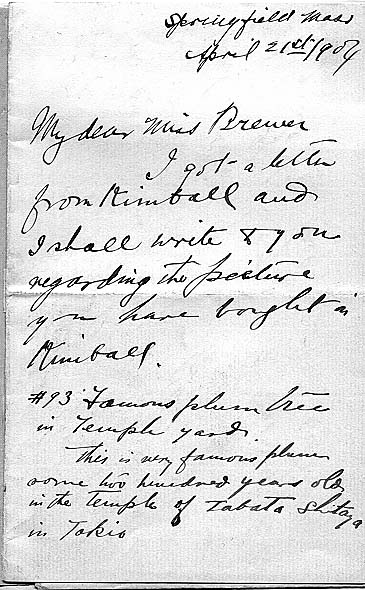 Springfield Mass
April 21st/1904
My dear Miss Brewer
I got a letter
from Kimball and
I shall write to you
regarding the picture
you have bought in
Kimball.
#93 Famous plum tree
in Temple yard.
This is very famous plum
some two hundred years old
in the temple of Tabata Shitaya
in Tokio